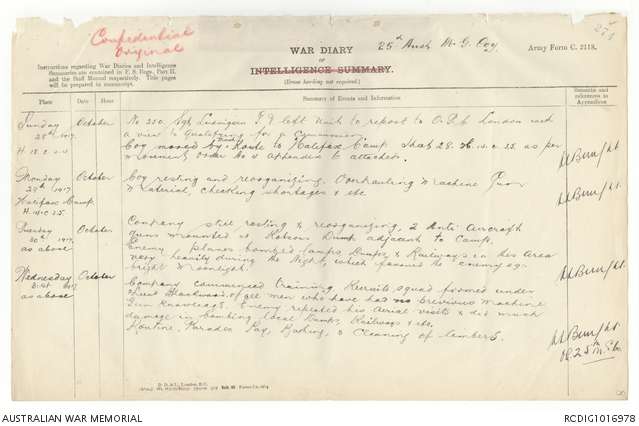 Confidential
Original
25th Aust M. G. Coy
274
WAR DIARY
OF
INTELLIGENCE SUMMARY.
(Erase heading not required.)
Army Form C. 2118.
Instructions regarding War Diaries and Intelligence
Summaries are contained in F. S. Regs., Part II.
and the Staff Manual respectively. Title pages
will be prepared in manuscript.
Place
Date
Hour
Summary of Events and Information
Remarks and
references to
Appendices
Sunday October No 250. Sgt G. F. left Unit to report to London with
28th 1917. a view to Qualifying for a Commission
Coy moved by Route to Halifax Camp Sheet 28. H. 14. c. 25 as per
Movement order No appendix to attached.
Monday October Coy resting and reorganizing. Overhauling Machine Guns
29th 1917 Material, checking shortages & etc
Halifax Camp
H. 14. c. 25
Tuesday October Company still resting & reorganizing, 2 Anti Aircraft
30th 1917 Guns mounted at Dump adjacent to Camp.
as above Enemy planes bombed Camps, Dumps & Railways in this Area
very heavily during the Night, which favoured the enemy as
bright Moonlight.
Wednesday October Company commenced training. Recruits squad formed under
31st 1917 Lieut of all men who have had no previous Machine
as above Gun knowledge. Enemy repeated his Aerial visits & did much
damage in bombing local Dumps, Railways & etc.
Routine, Parades Pay, Bathing, & Cleaning of limbers.
AUSTRALIAN WAR MEMORIAL
RCDIG1016978